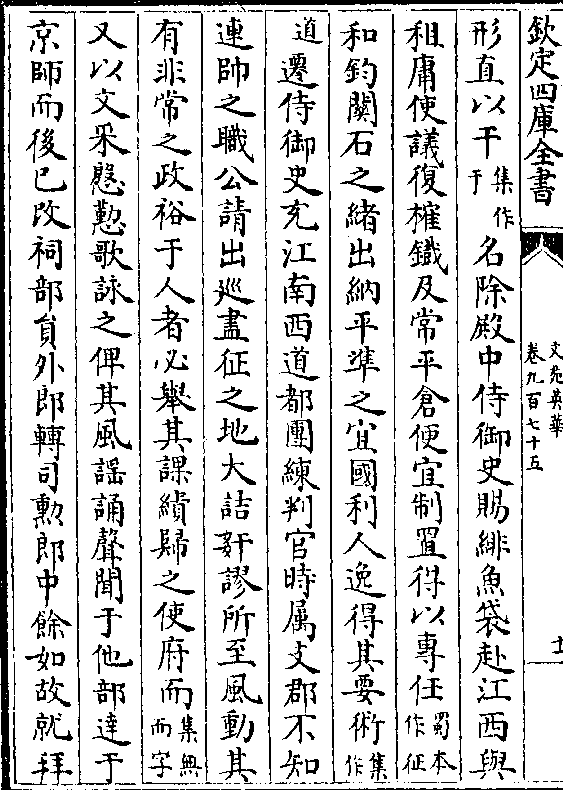 欽定四庫全書
文苑英華
卷九百七十五
十
形直以干集作于名除殿中侍御史賜緋魚袋赴江西與
租庸使議復榷鐵及常平倉便宜制置得以專任蜀本作征
和鈞關石之緒出納平準之宜國利人逸得其要術集作
道遷侍御史充江南西道都團練判官時属支郡不知
連帥之職公請出廵盡征之地大詰姧謬所至風動其
有非常之政裕于人者必舉其課績歸之使府而集無而字
又以文采慇懃歌詠之俾其風謡誦聲聞于他部達于
京師而後已改祠部貟外郎轉司勲郎中餘如故就拜